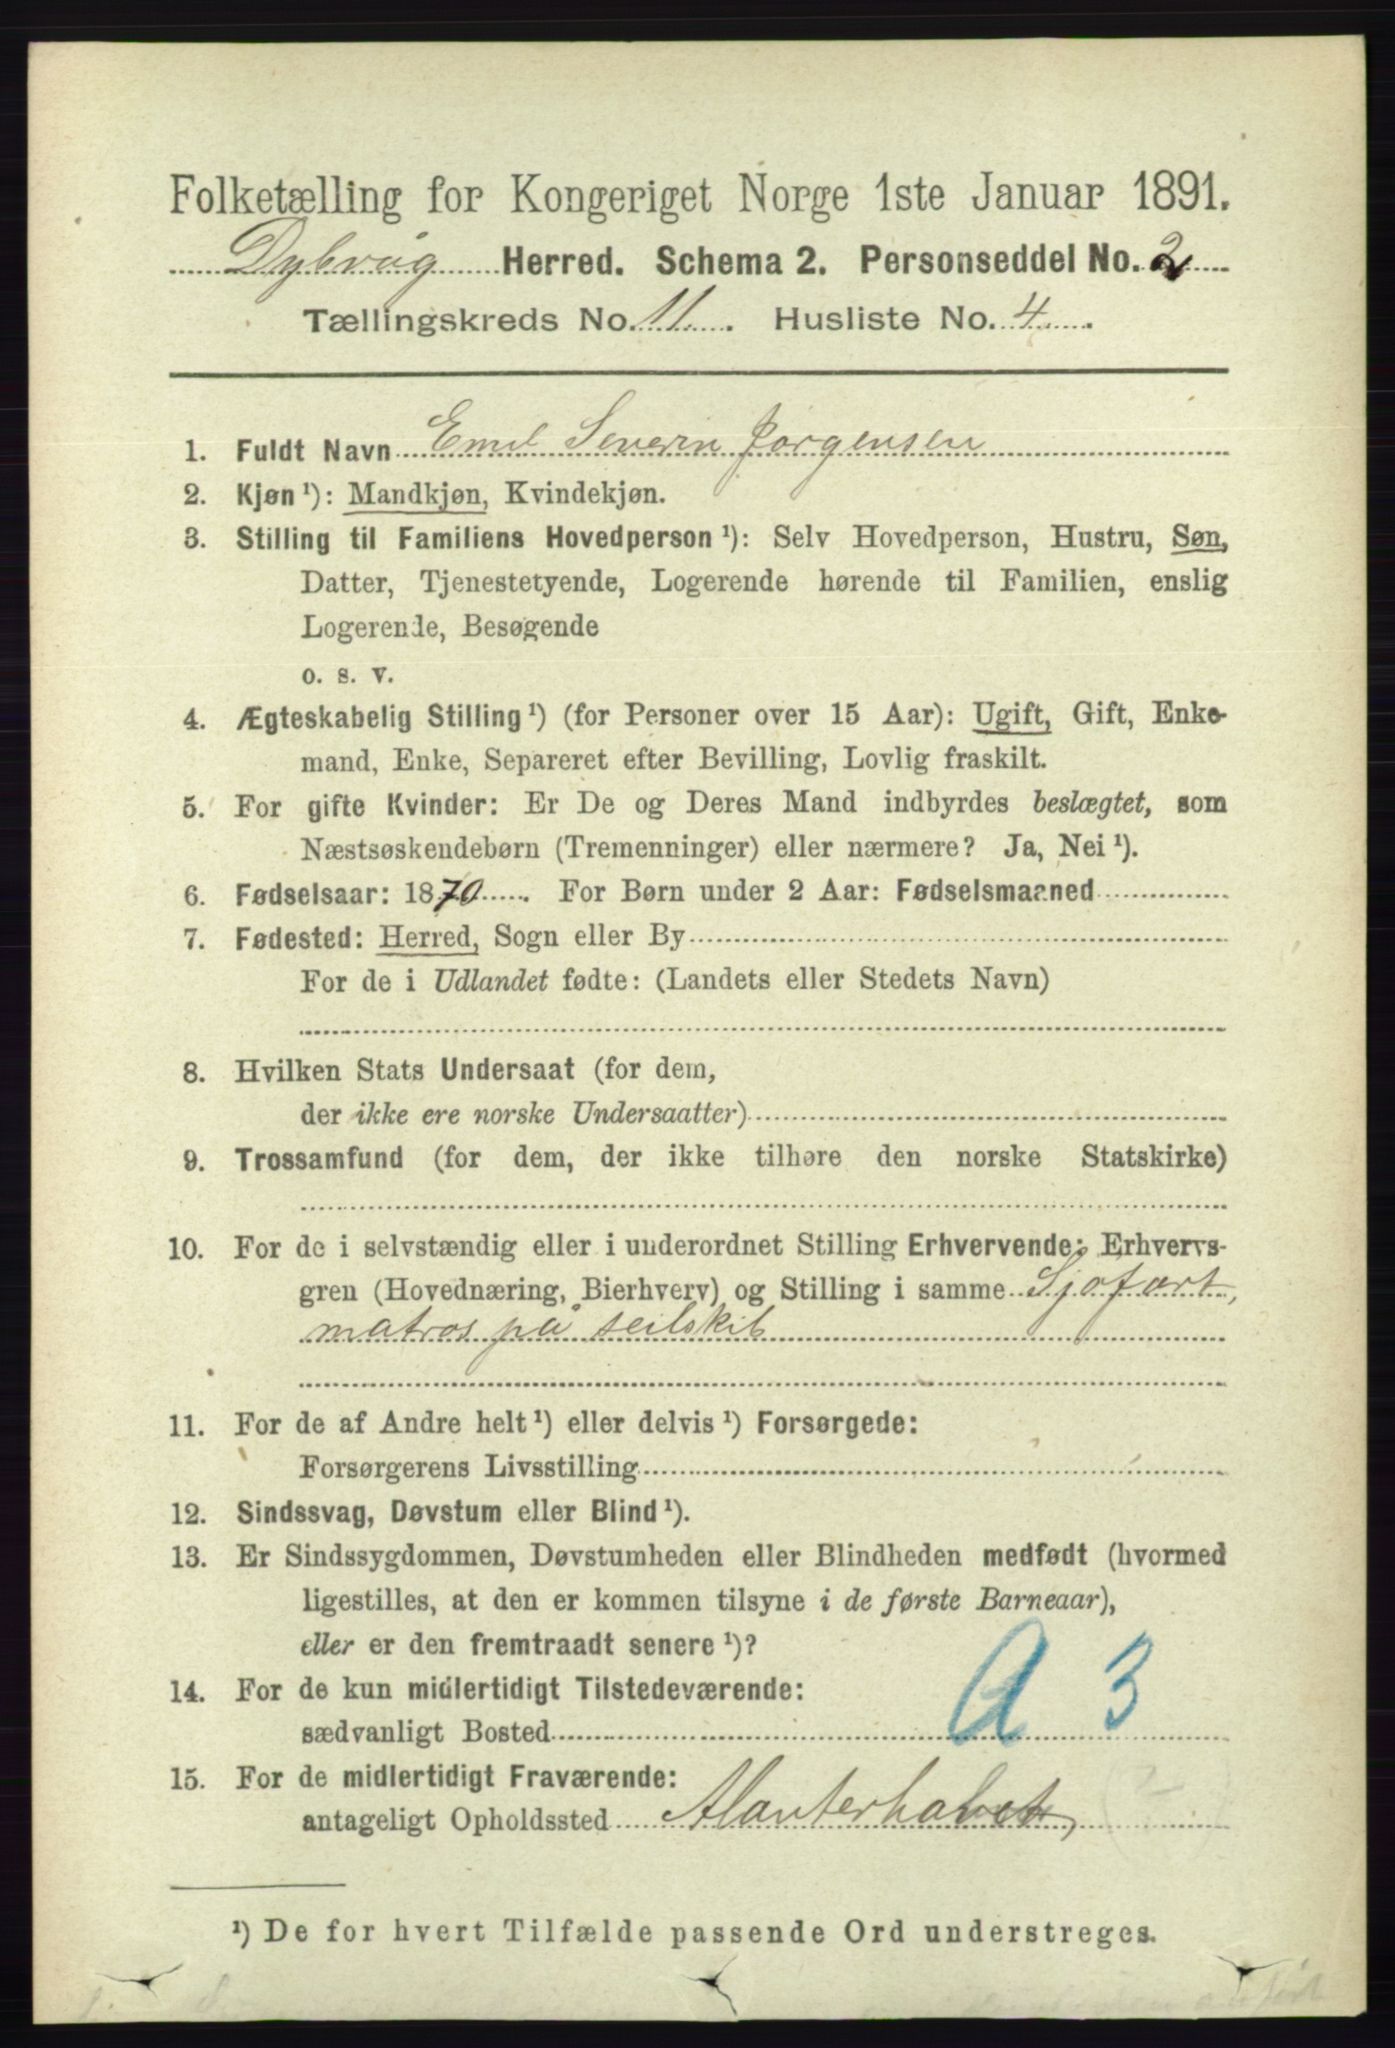 Folketælling for Kongeriget Norge 1ste Januar 1891.
Dybvåg Herred. Schema 2. Personseddel No. 2
Tællingskreds No. 11. Husliste No. 4.
1. Fuldt Navn Emil Severin Jørgensen
2. Kjøn ¹): Mandkjøn, Kvindekjøn.
3. Stilling til Familiens Hovedperson ¹): Selv Hovedperson, Hustru, Søn,
Datter, Tjenestetyende, Logerende hørende til Familien, enslig
Logerende, Besøgende
o. s. v.
4. Ægteskabelig Stilling ¹) (for Personer over 15 Aar): Ugift, Gift, Enke-
mand, Enke, Separeret efter Bevilling, Lovlig fraskilt.
5. For gifte Kvinder: Er De og Deres Mand indbyrdes beslægtet, som
Næstsøskendebørn (Tremenninger) eller nærmere? Ja, Nei ¹).
6. Fødselsaar: 1870. For Børn under 2 Aar: Fødselsmaaned
7. Fødested: Herred, Sogn eller By
For de i Udlandet fødte: (Landets eller Stedets Navn)
8. Hvilken Stats Undersaat (for dem,
der ikke ere norske Undersaatter)
9. Trossamfund (for dem, der ikke tilhøre den norske Statskirke)
10. For de i selvstændig eller i underordnet Stilling Erhvervende: Erhvervs-
gren (Hovednæring, Bierhverv) og Stilling i samme Sjøfart,
matros på seilskib
11. For de af Andre helt ¹) eller delvis ¹) Forsørgede:
Forsørgerens Livsstilling
12. Sindssvag, Døvstum eller Blind ¹).
13. Er Sindssygdommen, Døvstumheden eller Blindheden medfødt (hvormed
ligestilles, at den er kommen tilsyne i de første Barneaar),
eller er den fremtraadt senere ¹)?
14. For de kun midlertidigt Tilstedeværende:
sædvanligt Bosted
A 3
15. For de midlertidigt Fraværende:
antageligt Opholdssted Atlanterhavet,
¹) De for hvert Tilfælde passende Ord understreges.